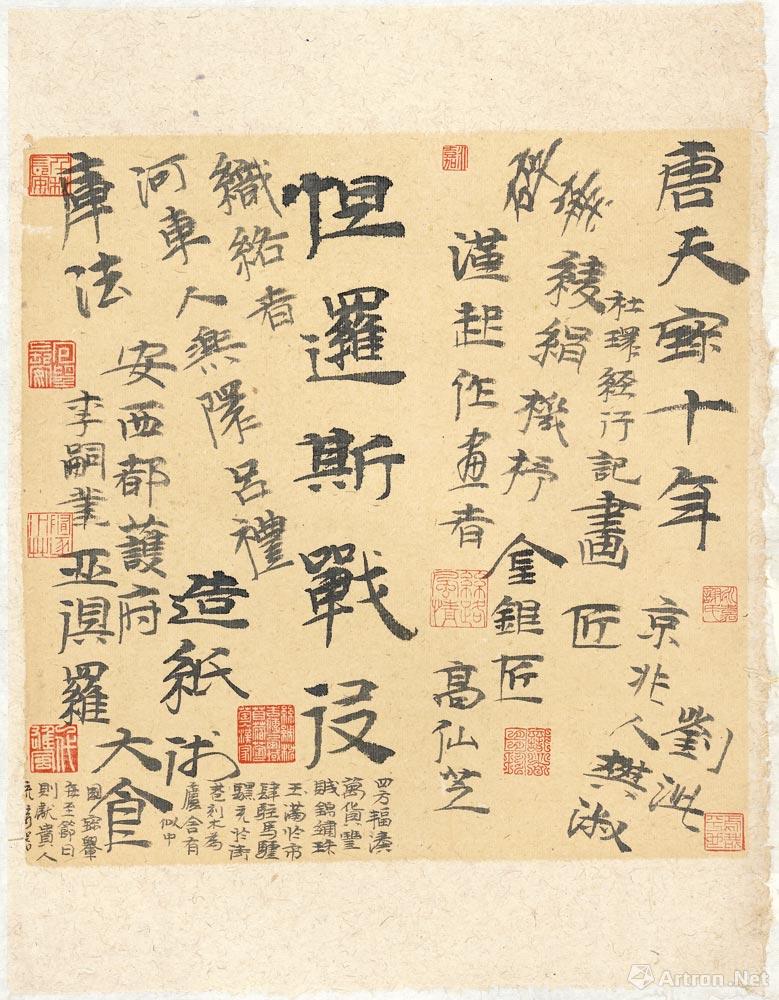 唐天寳十年
劉泚
京兆人樊淑
杜環經行記
畫匠
綾絹機杼
金銀匠
漢起作畫者
高仙芝
絲路風情
怛邏斯戰役
織絡者
河東人樂隱呂禮
造紙術
安西都護府
大食
庫法
李嗣業
亞俱羅
四方輻湊
萬貨豐
賤錦繡珠
玉滿於市
肆駐馬驢
騾充於街
巷刻木為
廬舍有
似中
國寳轝
每至節日
則獻貴人
Artron.Net